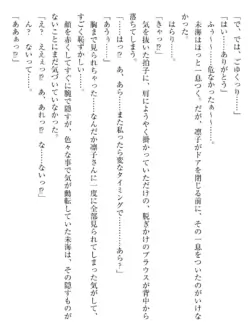 「で、では、ごゆっくり」
「はい…ありがとう」
ふぅ～～……危なかったぁ～～。
未海はほっと一息つく。だが、凛子がドアを閉じると、その一息をついたのがいけな
かった。
はらり……。
「きゃっ⁉」
気を抜いた拍子に、肩にようやく掛かっていただけの、脱ぎかけのブラウスが背中から
落ちてしまう。
「あうぅ……」
「……はっ⁉ あ、あら……また私ったら変なタイミングで……」
胸まで見られちゃった……なんだか凛子さんに一度に全部見られてしまった気がして、
すごく恥ずかしい……。
顔を赤くしてすぐに腕で隠すが、色々な事で気が動転していた未海は、その隠すものが
ないことにまだ気づいていなかった。
「え？ えぇっ⁉ あ、あれっ⁉ な……ないっ⁉」
「な？ ないって……？」
「ああぁっ⁉」